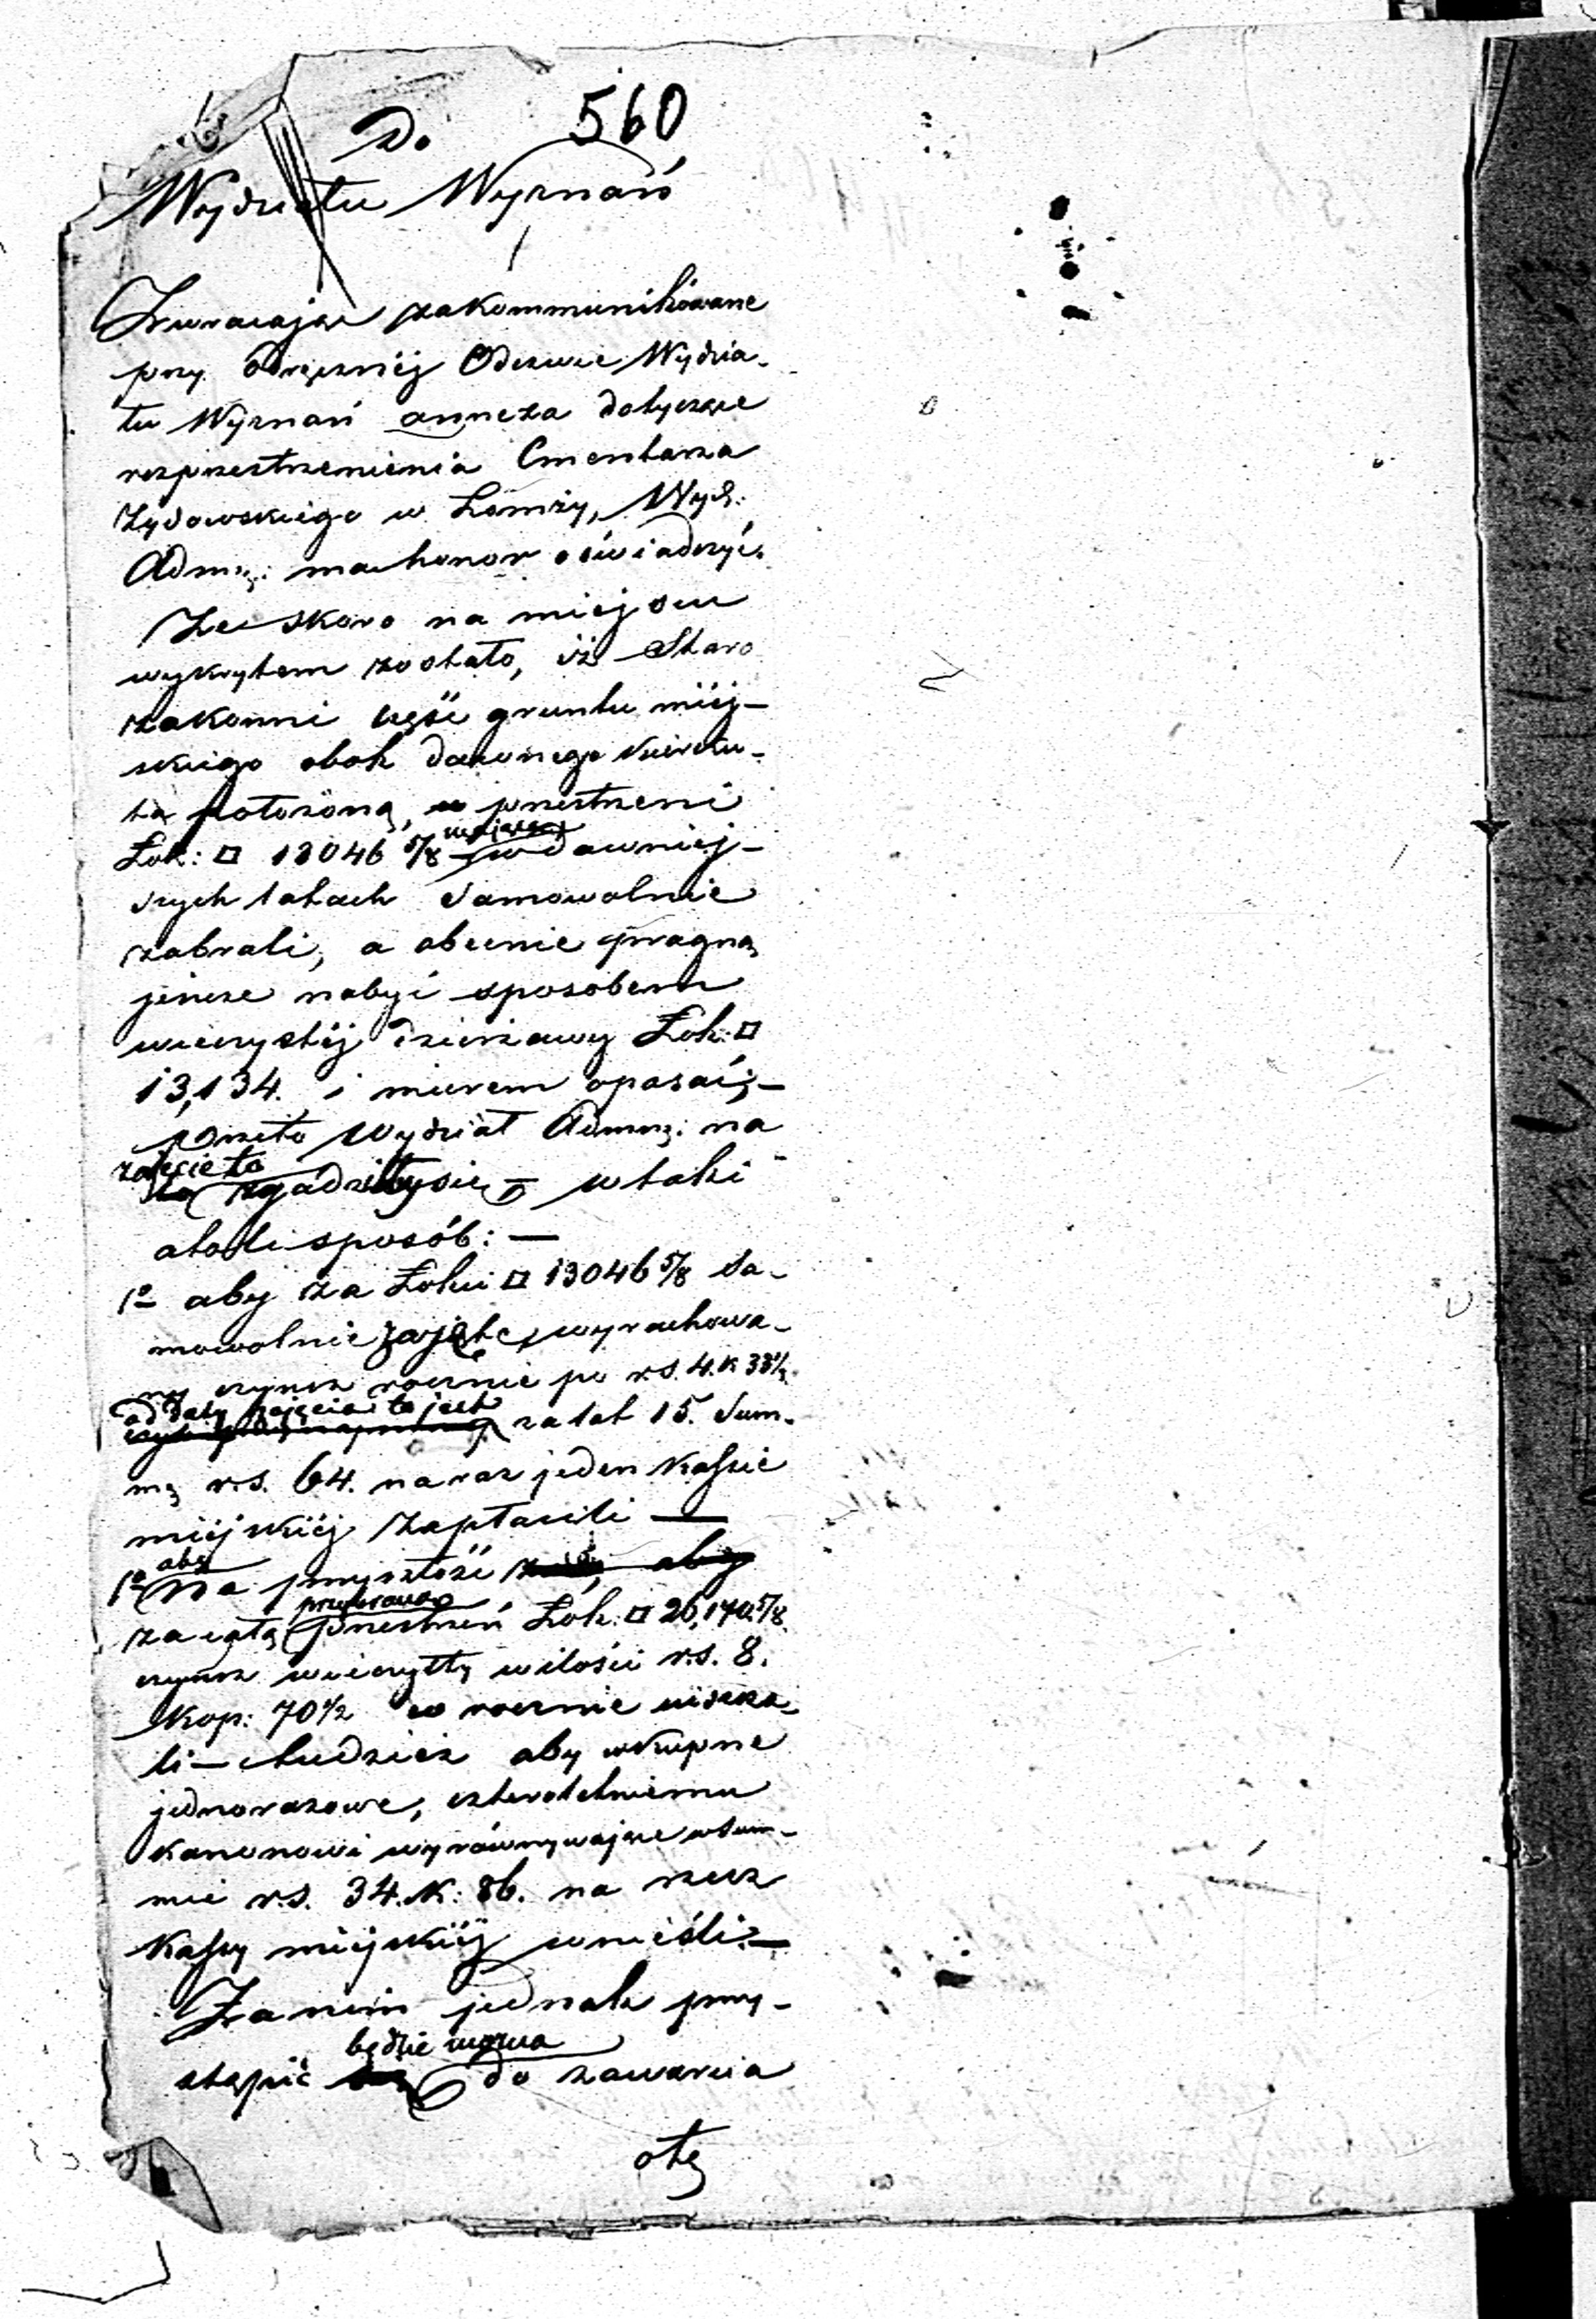 560
Do
Wydziału Wyznań
Zwracając zakommunikowane
przy odręcznéj Odezwie Wydzia-
łu Wyznań annexa dotyczące
rozprzestrzenienia Cmentarza
Żydowskiego w Łomży, Wydz:
Admn: ma honor oświadczyć.
Że skoro na miejscu
wykrytem zostało, iż Staro
zakonni część gruntu miej-
skiego obok dawnego
położoną, przestrzeni
Łok: □ 13046 5/8 w dawniej-
szych latach samowolnie
zabrali, a obecnie pragną
jeszcze nabyć sposobem
wieczystéj dzierżawy Łok: □
13,134. i murem opasać;-
przeto Wydział Admn: na
zajęcie to
zgadza się w taki
atoli sposób: —
1º aby za Łokci □ 13046 5/8 sa-
mowolnie zajęte, wyrachowa-
ny czynsz rocznie po r.s. 4. k 33½
od daty zajęcia to jest
za lat 15. Sum-
mę r.s. 64. na raz jeden Kassie
miejskiéj zapłacili —
aby
Na przyszłość aby
za całą przestrzeń Łok: □ 26,170 5/8
czynsz wieczysty w ilości r.s. 8.
Kop: 70½ rocznie uiszcza-
li — tudzież aby wkupne
jednorazowe, czteroletniemu
kanonowi wyrównywające w sum-
mie r.s. 34. K: 86. na rzecz
Kassy miejskiéj wnieśli. —
Zanim jednak przy-
będzie można
stąpić do zawarcia
otę